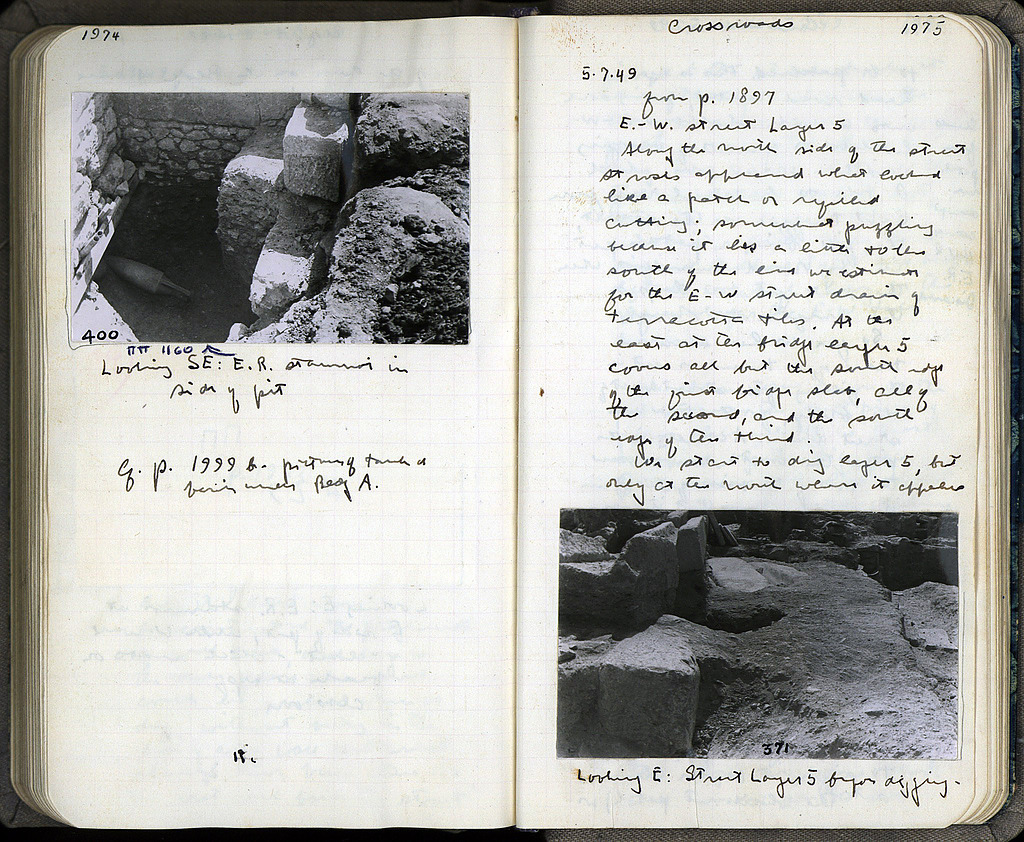 1974
400
ΠΠ 1160
Looking SE: E.R. stamnos in
side of pit
Cf. p. 1999 b. picture of
under Bldg A.
Crossroads
1975
5.7.49
from p. 1897
E.-W. street Layer 5
Along the north side of the street
strosis appeared what looked
like a patch or refilled
cutting; somewhat puzzling
because it lies a little to the
south of the line we estimate
for the E-W street drain of
terracotta tiles. At the
east at the bridge layer 5
covers all but the south edge
of the first bridge slab, all of
the second, and the south
edge of the third.
We start to dig layer 5, but
only at the north where it appears
371
Looking E: Street Layer 5 before digging.